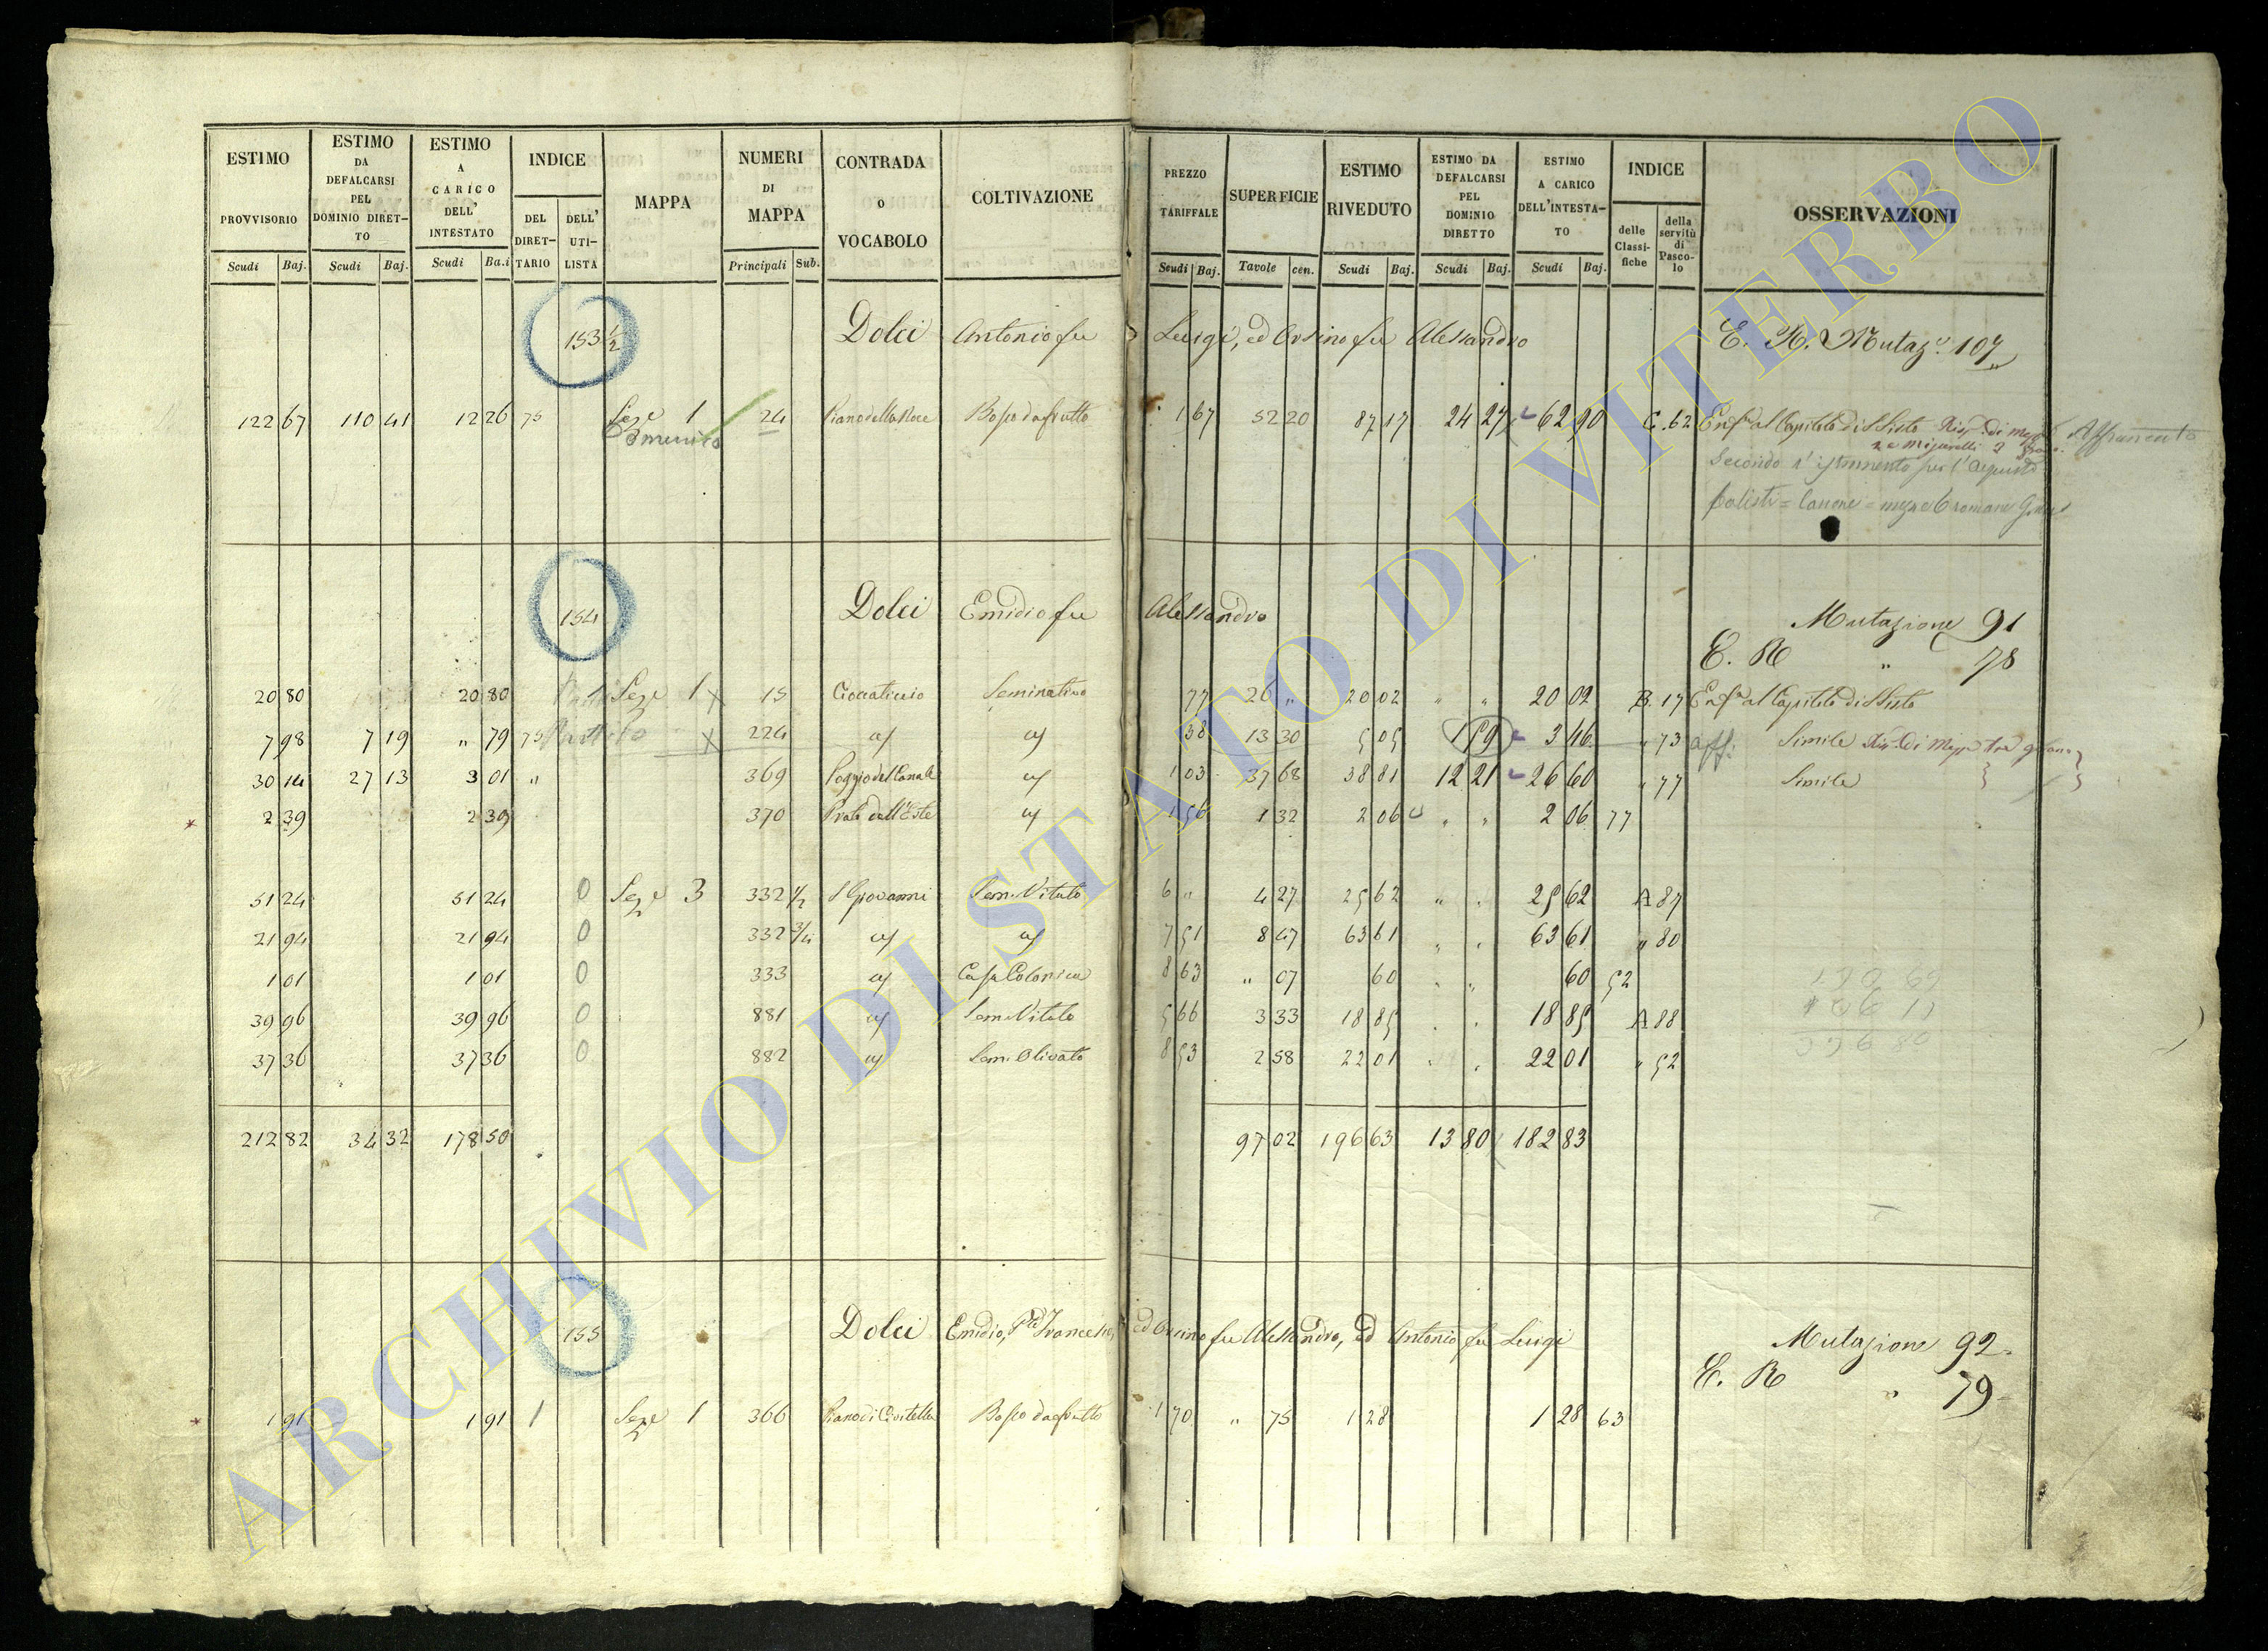 ESTIMO PROVVISORIO Scudi Baj.
ESTIMO DA DEFALCARSI PEL DOMINIO DIRETTO Scudi Baj.
ESTIMO A CARICO DELL' INTESTATO Scudi Ba.i
INDICE DEL DIRETTARIO DELL' UTILISTA
MAPPA
NUMERI DI MAPPA Principali Sub.
CONTRADA O VOCABOLO
COLTIVAZIONE
PREZZO TARIFFALE Scudi Baj.
SUPERFICIE Tavole cen.
ESTIMO RIVEDUTO Scudi Baj.
ESTIMO DA DEFALCARSI PEL DOMINIO DIRETTO Scudi Baj.
ESTIMO A CARICO DELL'INTESTATO Scudi Baj.
INDICE delle Classifiche della servitù di Pascolo
OSSERVAZIONI
153 1/2 Dolci Antonio fu Luigi, ed Orsino fu Alessandro E. R. Mutaz.e 107
122 67 110 41 12 26 75 Seze 1 24 Piano della Noce Bosco da frutto 1 67 52 20 87 17 24 27 62 90 C. 62 Enfa al Capitolo di S Sisto Affrancato
Secondo l'istrumento per l'acquisto
154 Dolci Emidio fu Alessandro Mutazione 91
E. R " 78
20 80 20 80 Seze 1 x 15 Seminativo 77 26 " 20 02 " " 20 02 B. 17 Enfa al Capitolo di S Sisto
7 98 7 19 " 79 75 x 224 " " 38 13 30 5 05 1 59 3 46 " 73 aff: Simile
30 14 27 13 3 01 " 369 Poggio del Canale " 1 03 37 68 38 81 12 21 26 60 " 77 Simile
2 39 2 39 370 Prato dell'Este " 1 56 1 32 2 06 " " 2 06 77
51 24 51 24 0 Seze 3 332 1/2 S Giovanni Sem. Vitato 6 " 4 27 25 62 " " 25 62 A 87
21 94 21 94 0 332 3/4 " " 7 51 8 47 63 61 " " 63 61 " 80
1 01 1 01 0 333 " Casa Colonica 8 63 " 07 60 " " 60 52
39 96 39 96 0 881 " Sem. Vitato 5 66 3 33 18 85 " " 18 85 A 88
37 36 37 36 0 882 " Sem. Olivato 8 53 2 58 22 01 " " 22 01 " 52
212 82 34 32 178 50 97 02 196 63 13 80 182 83
155 Dolci Emidio, Francesco, ed Orsino fu Alessandro, ed Antonio fu Luigi Mutazione 92
E. R " 79
1 91 1 91 1 Seze 1 366 Piano di Civitella Bosco da frutto 1 70 " 75 1 28 1 28 63
ARCHIVIO DI STATO DI VITERBO